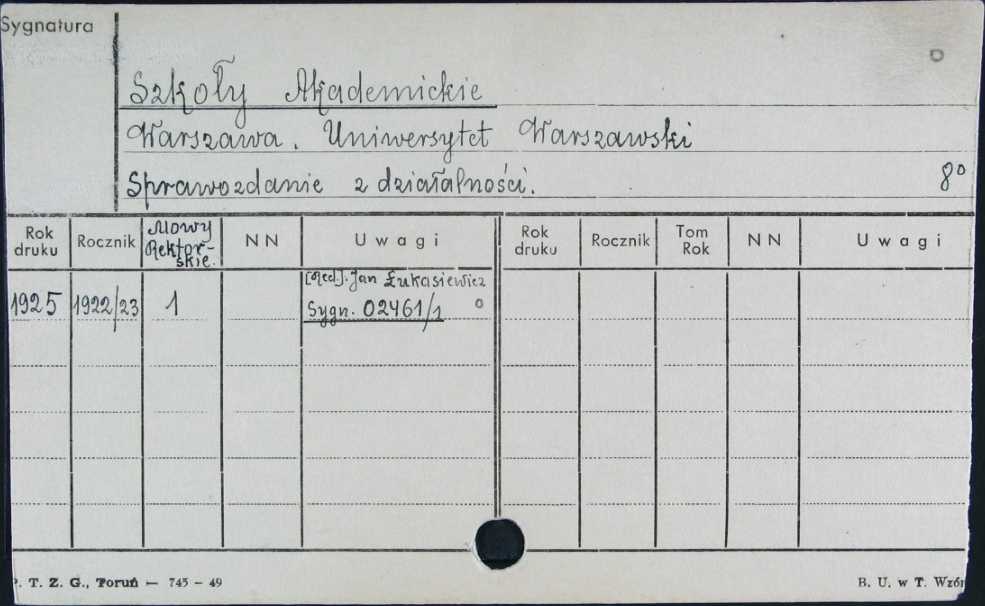 Sygnatura
Szkoły Akademickie
Warszawa. Uniwersytet Warszawski
Sprawozdanie z działalności. 8°
Rok druku Rocznik Mowy Rektor-skie. NN Uwagi Rok druku Rocznik Tom Rok NN Uwagi
[Red]. Jan Łukasiewicz
1925 1922/23 1 Sygn. 02461/1
P. T. Z. G., Toruń — 745 - 49 B. U. w T. Wzór